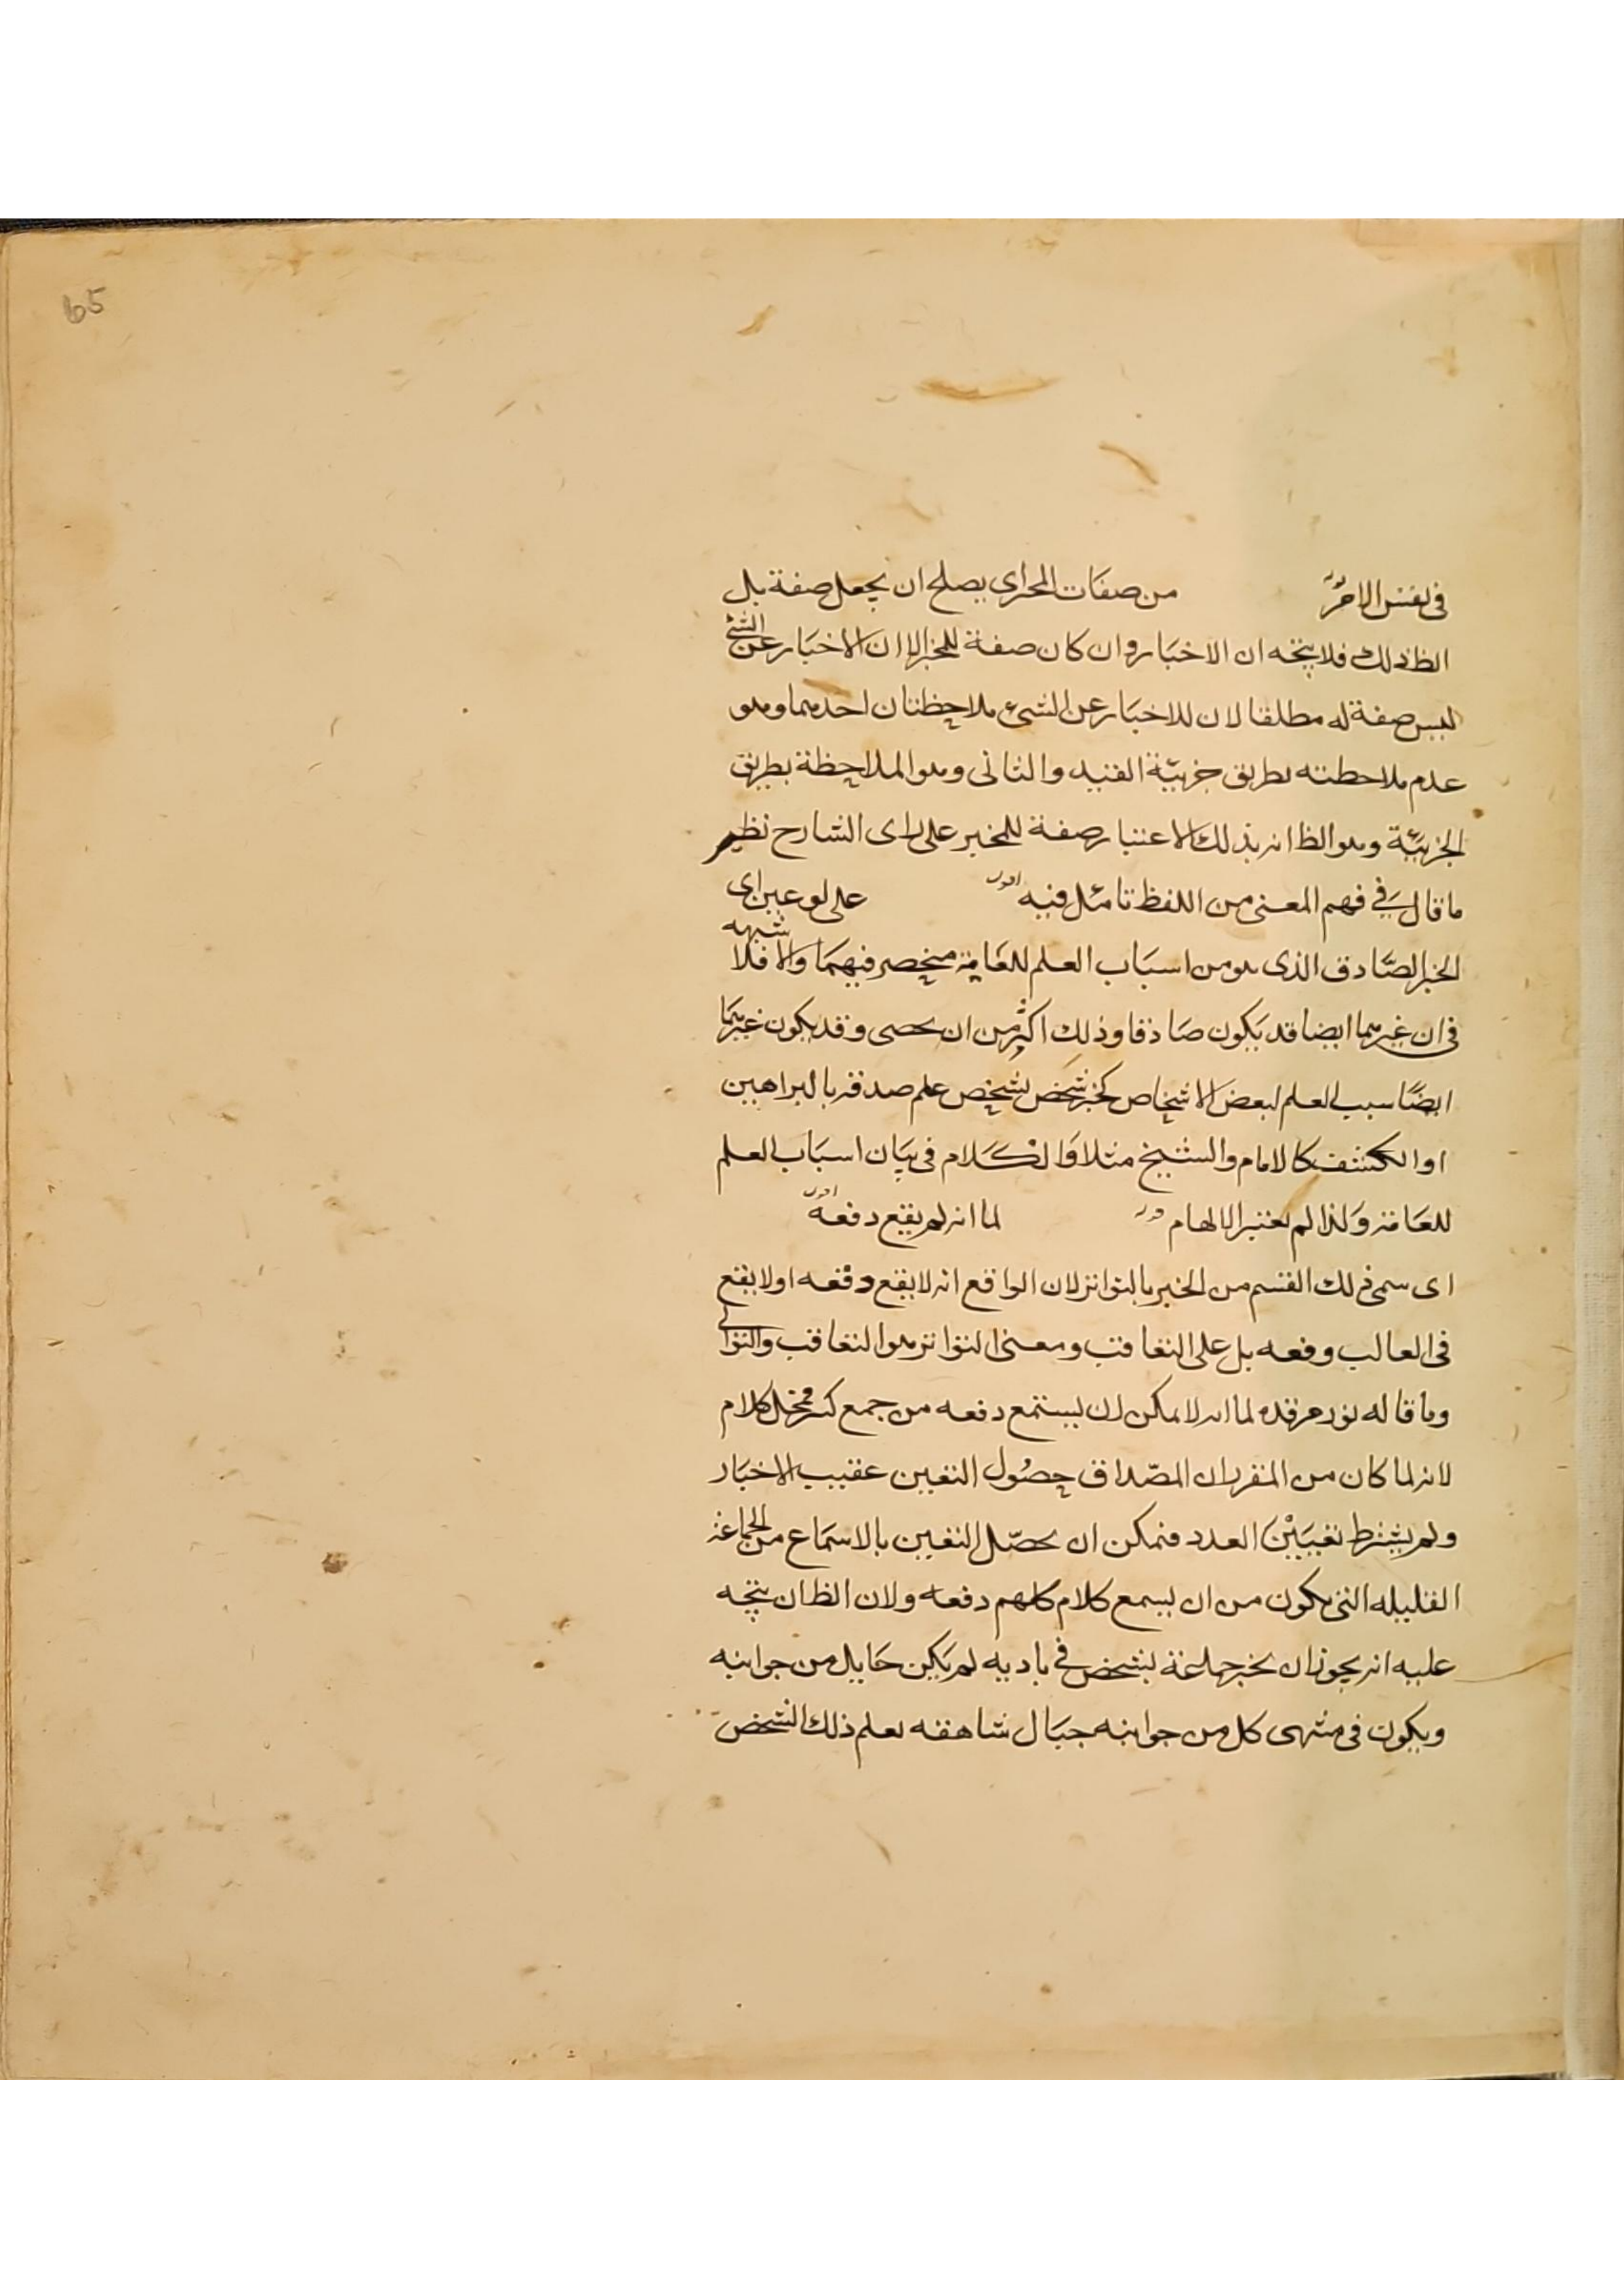 65
في نفس الامر من صفات المخبر اى يصلح ان يجعل صفة بل
الظ ذلك فلا يتجه ان الاخبار وان كان صفة للمخبر الا ان الاخبار عن الشئ
ليس صفة له مطلقا لان للاخبار عن الشىء ملاحظتان احدهما وهو
عدم ملاحظته بطريق جزييّة القيد والثانى وهو الملاحظة بطريق
الجزييّة وهو الظ انه بذلك الاعتبار صفة للمخبر على راى الشارح نظير
ما قال في فهم المعنى من اللفظ تامل فيه قوله على لوعين اى
الخبر الصّادق الذى هو من اسباب العلم للعامة منحصر فيهما والا فلا شبهه
فى ان غيرهما ايضا قد يكون صادقا وذلك اكثر من ان يحصى وقد يكون غيرهما
ايضًا سبب العلم لبعض الاشخاص كخبر شخص لشخص علم صدقه بالبراهين
او الكشف كالامام والشيخ مثلا وَالكلام فى بيان اسباب العلم
للعَامة وَلذا لم يعتبر الالهام قوله لما انه لم يقع دفعه
اى سمى ذلك القسم من الخبر بالتواتر لان الواقع انه لا يقع دفعه او لا يقع
فى الغالب دفعه بل على التعاقب ومعنى التواتر هو التعاقب والتوالى
وما قاله نور مرقده لما انه لا يمكن ان يستمع دفعه من جمع كثير محل كلام
لانه لما كان من المقرر ان المصداق حصُول اليقين عقيب الاخبار
ولم يشترط تعيين العدد فيمكن ان يحصّل اليقين بالاسماع من الجماعة
القليله التى يكون من ان يسمع كلام كلهم دفعه ولان الظ ان يتجه
عليه انه يجوز ان يخبر جماعة لشخص في باديه لم يكن حايل من جوانبه
ويكون فى منتهى كل من جوانبه جبال شاهقه يعلم ذلك الشخص